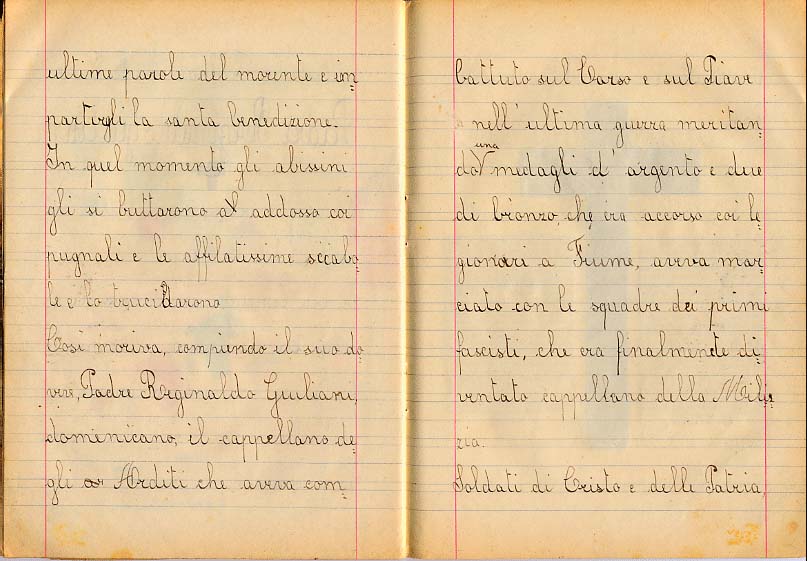 ultime parole del morente e im=
partirgli la santa benedizione.
In quel momento gli abissini
gli si buttarono addosso coi
pugnali e le affilatissime sciabo=
le e lo trucidarono
Così moriva, compiendo il suo do
vere, Padre Reginaldo Giuliani,
domenicano, il cappellano de=
gli Arditi che aveva com=
battuto sul Carso e sul Piave
nell' ultima guerra meritan=
do una medagli d' argento e due
di bronzo, che era accorso coi le=
gionari a Fiume, aveva mar=
ciato con le squadre dei primi
fascisti, che era finalmente di=
ventato cappellano della Mili=
zia.
Soldati di Cristo e delle Patria,